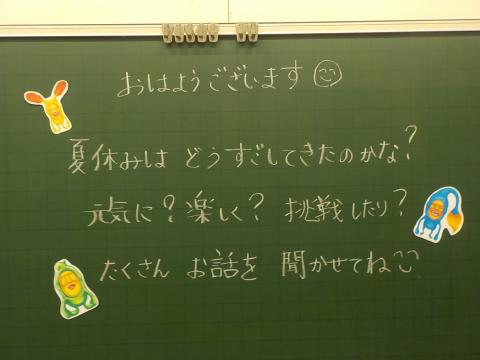 おはようございます
夏休みは どうすごしてきたのかな?
元気に?楽しく? 挑戦したり?
たくさん お話を 聞かせてね